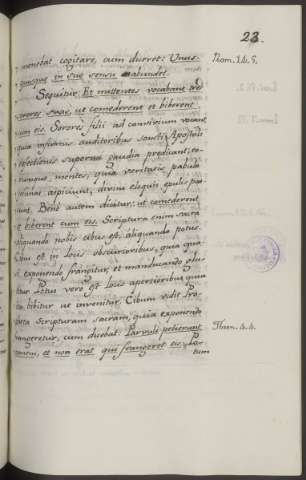 23.
monstrat cogitare, cum diceret: Unus- Rom. 14. 5.
quisque in suo sensu abundet.
Sequitur. Et mittentes vocabant tres
sorores suas, ut comederent et biberent
cum eis. Sorores filii ad convivium vocant
quia infirmis auditoribus sancti Apostoli
refectionis supernae gaudia praedicant, eo-
rumque mentes, quia veritatis pabula
aspiciunt, divini eloquii epulis pas-
cunt. Bene autem dicitur: ut comederent
et biberent cum eis. Scriptura enim sacra
aliquando nobis cibus est, aliquando potus.
Cibus est in locis obscurioribus, quia qua-
si exponendo frangitur, et mandendo glu-
titur. Potus vero est in locis apertioribus, quia
ita bibitur ut invenitur. Cibum vidit Pro-
pheta scripturam sacram, quia exponendo
frangeretur, cum dicebat: Parvuli petierunt Thren. 4. 4.
panem, et non erat qui frangeret eis. Par-
tum